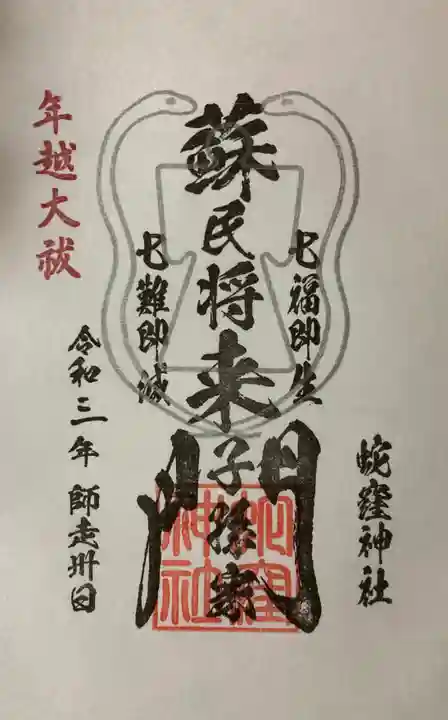 蛇窪神社
七福即生
蘇民将来子孫家門
七難即滅
年越大祓
令和三年 師走卅日
蛇窪神社